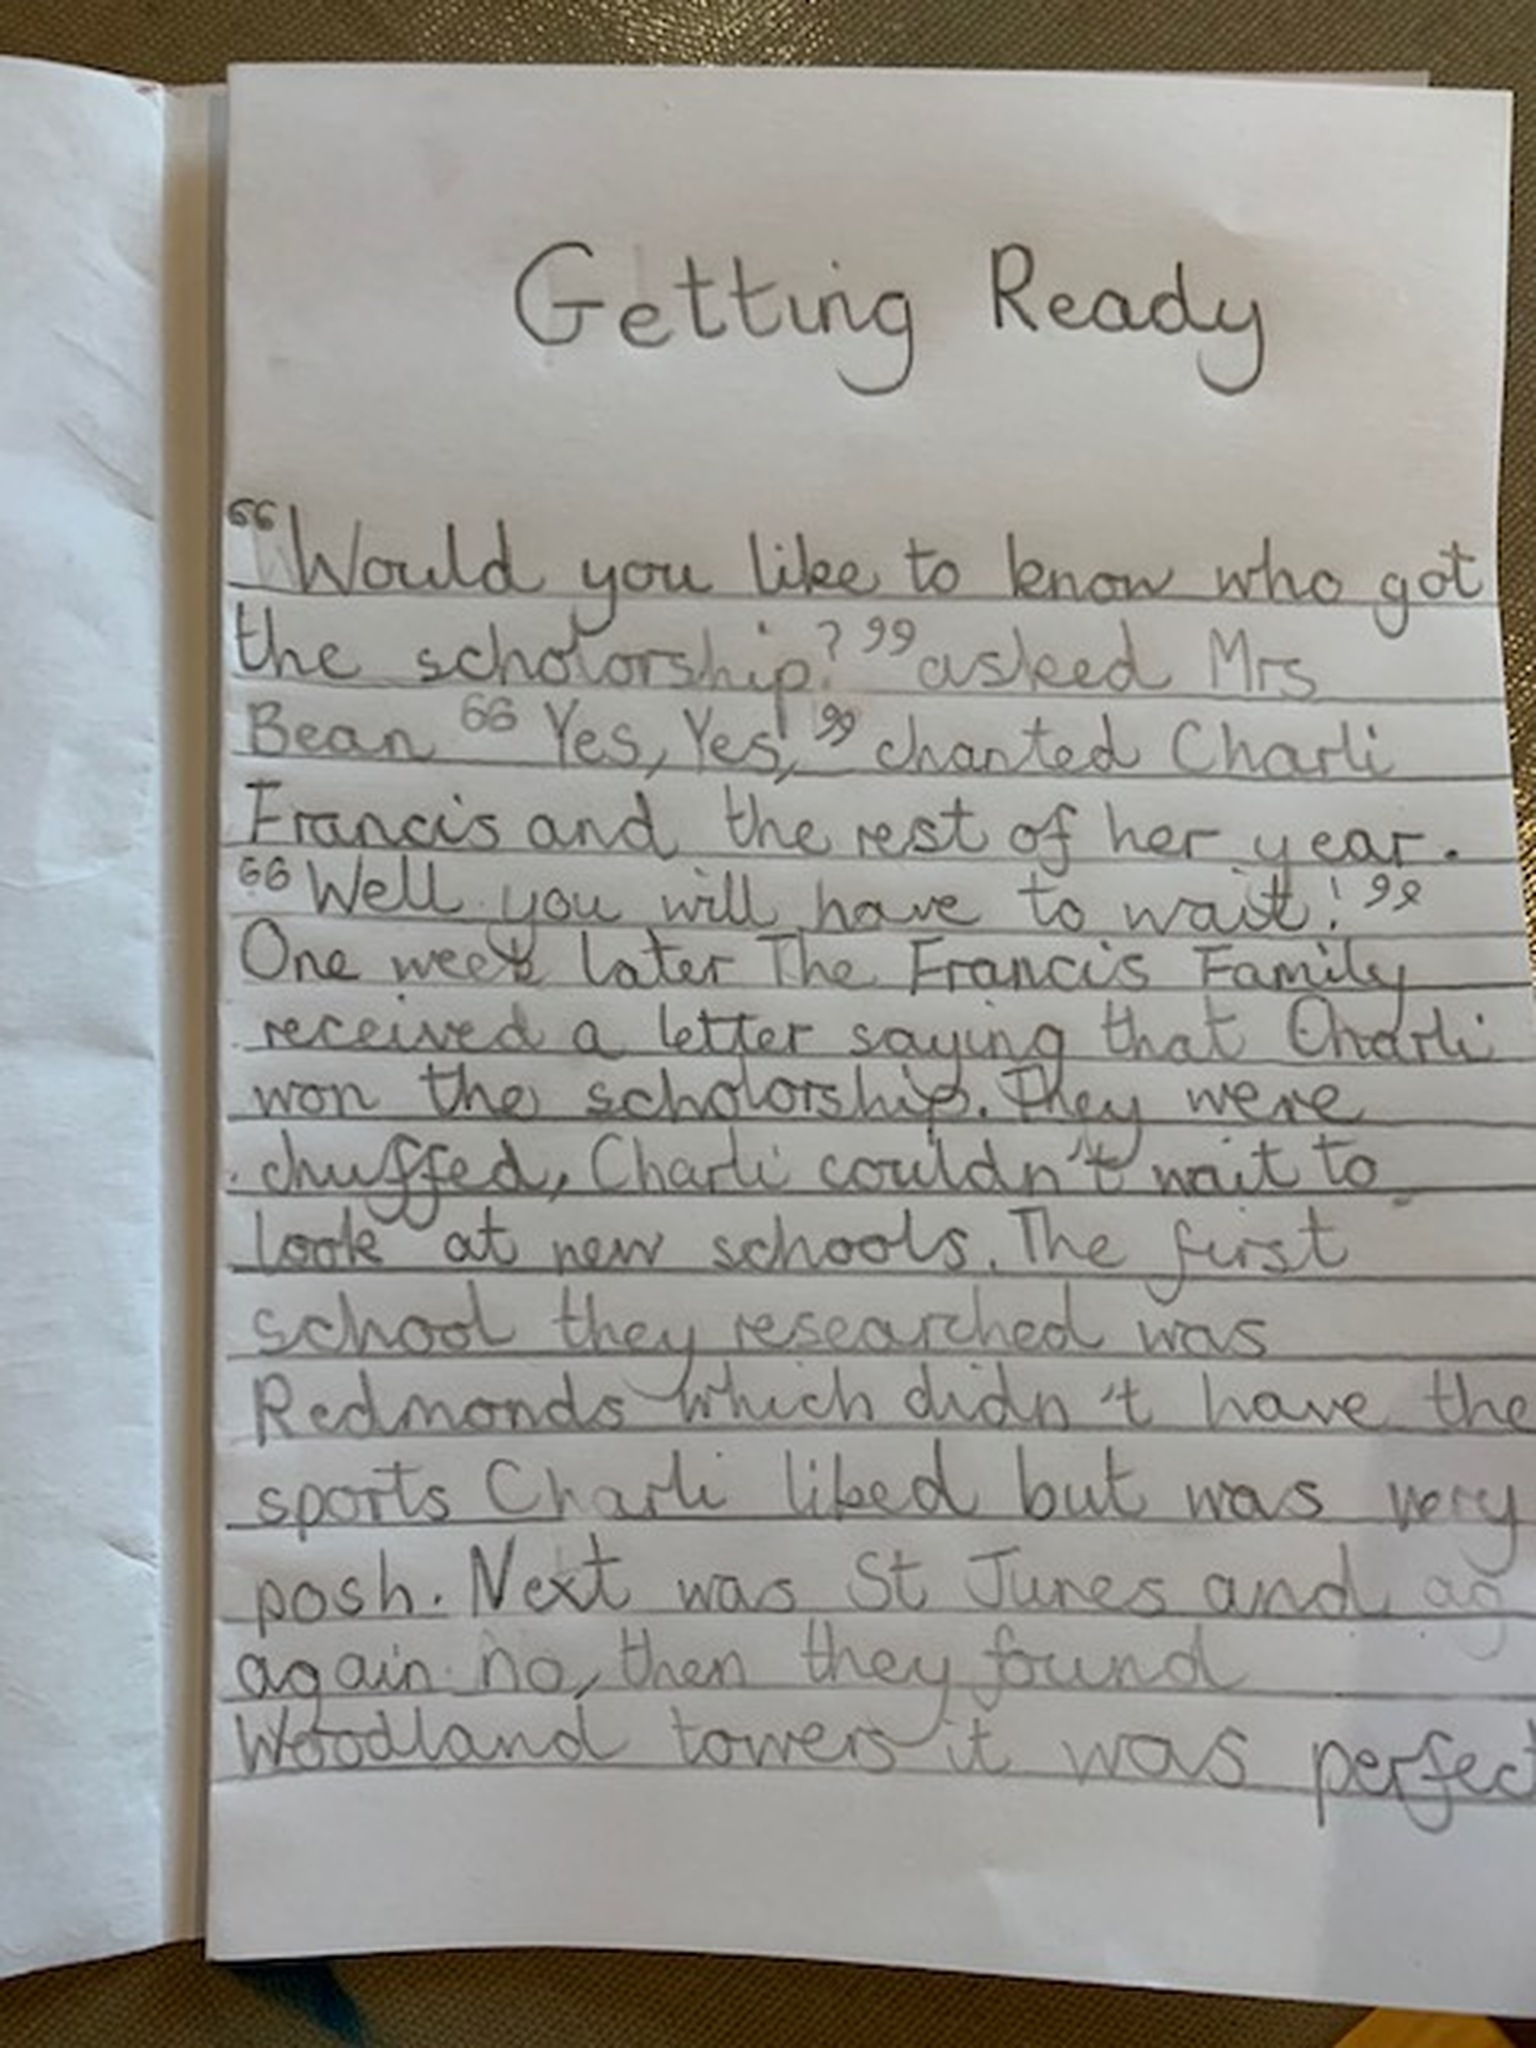 Getting Ready
"Would you like to know who got
the scholorship?" asked Mrs
Bean "Yes, Yes," chanted Charli
Francis and the rest of her year.
"Well you will have to wait!"
One week later The Francis Family
received a letter saying that Charli
won the scholorship. They were
chuffed, Charli couldn't wait to
look at new schools. The first
school they researched was
Redmonds which didn't have the
sports Charli liked but was very
posh. Next was St Junes and ag
again no, then they found
Woodland towers it was perfect